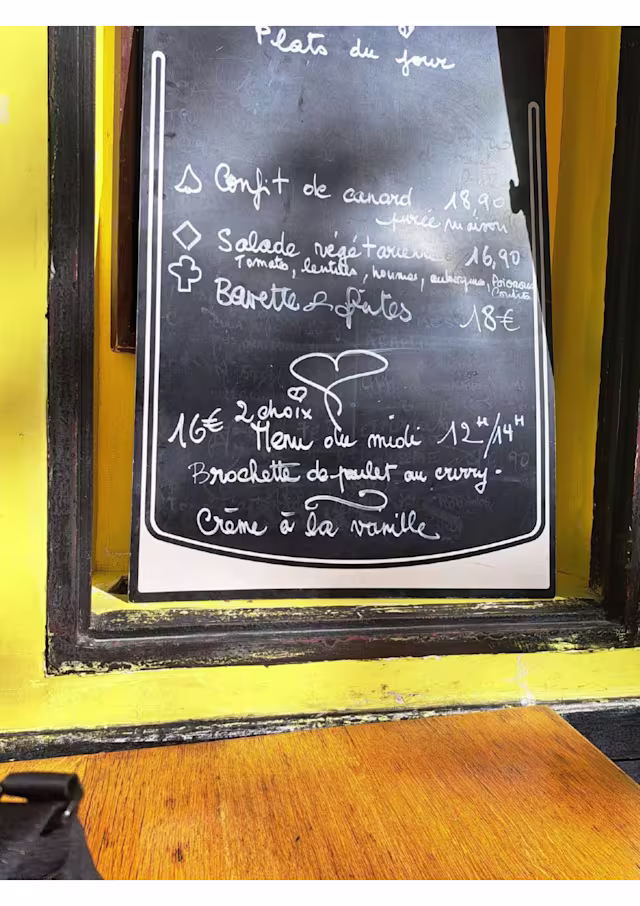 Plats du jour
Confit de canard 18,90
purée maison
Salade végétarienne 16,90
Tomates, lentilles, houmous, aubergines, Poivrons
Confits
Bavette & frites 18€
16€ 2 choix
Menu du midi 12H/14H
Brochette de poulet au curry.
Crème à la vanille